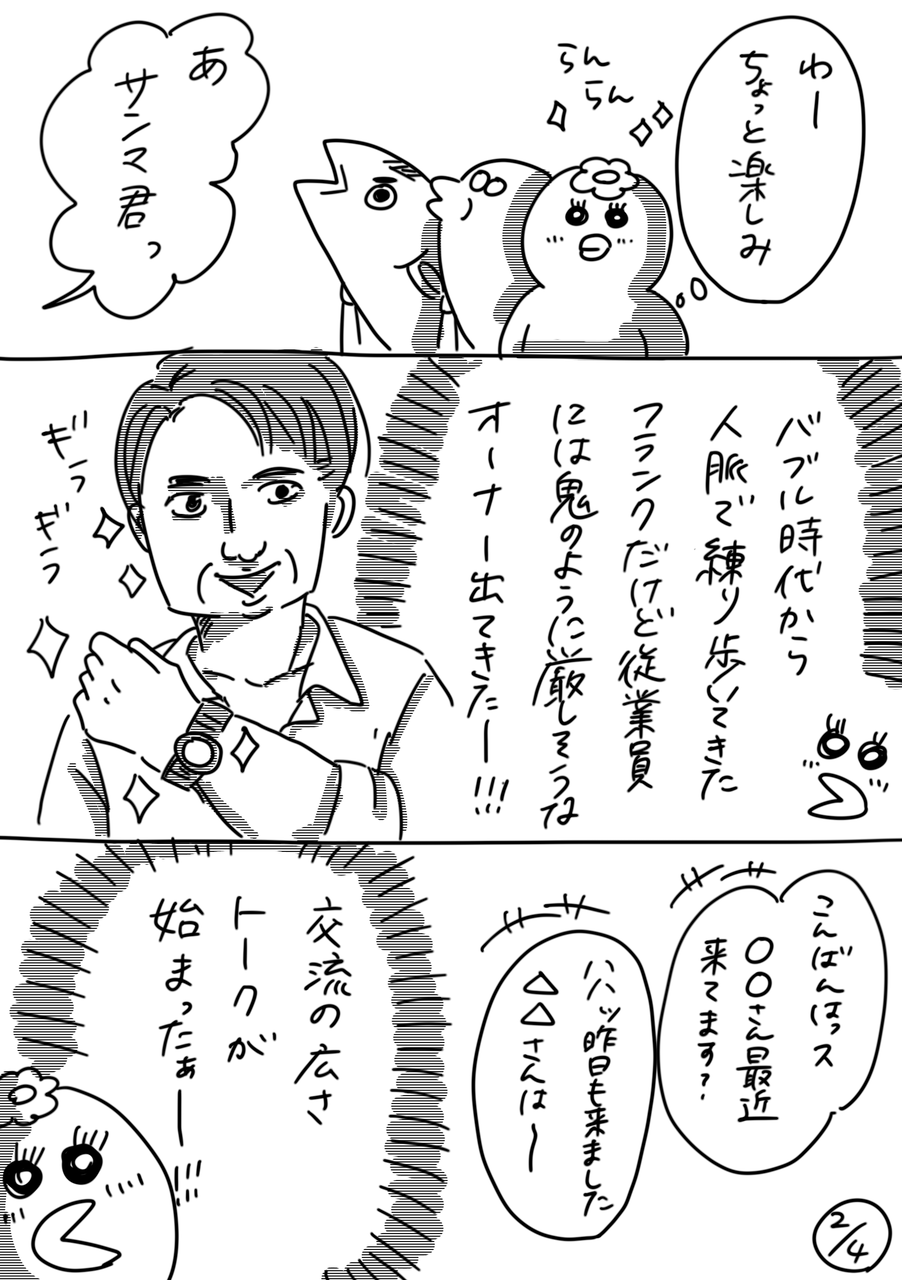 わー
ちょっと楽しみ
らん
らん
あ
サンマ君っ
バブル時代から
人脈で練り歩いてきた
フランクだけど従業員
には鬼のように厳しそうな
オーナー出てきたー!!!
ギラ
ギラ
こんばんはっス
〇〇さん最近
来てます?
ハハッ昨日も来ました
△△さんは〜
交流の広さ
トークが
始まったぁー!!!
2/4